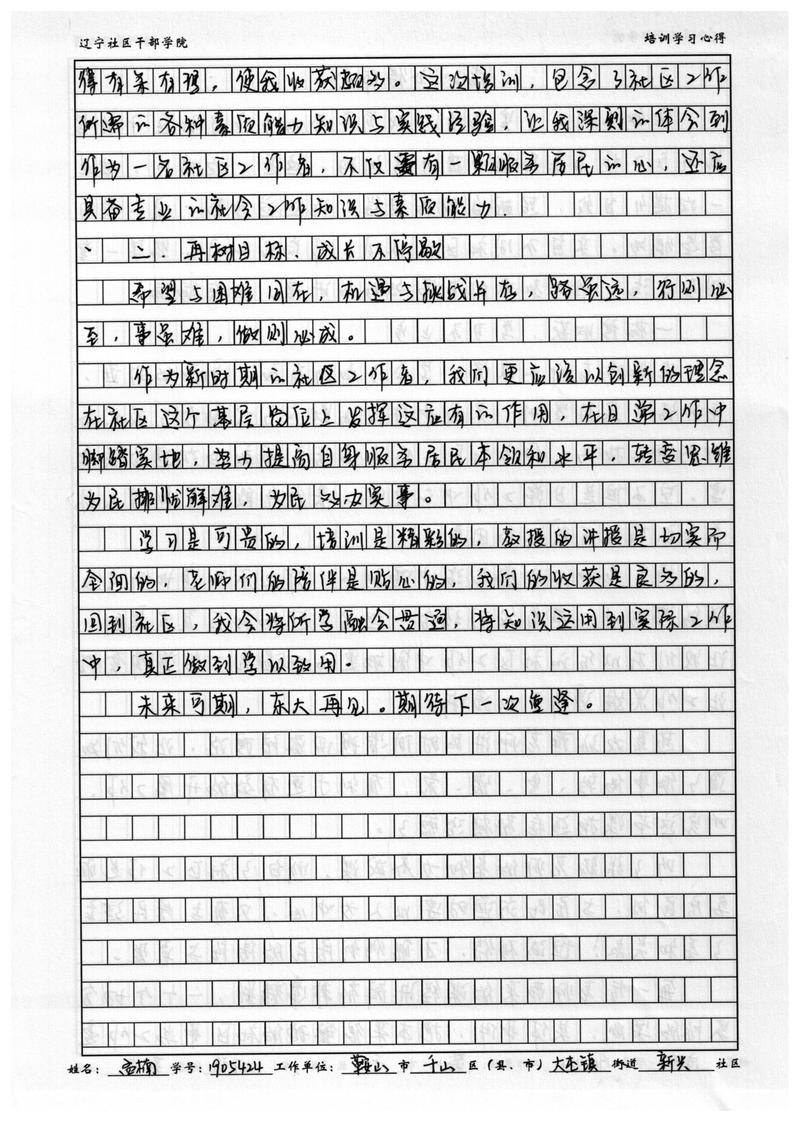 辽宁社区干部学院 培训学习心得
得有条有理，使我收获颇多。这次培训，包含了社区工作
所需的各种素质能力知识与实践经验，让我深刻的体会到
作为一名社区工作者，不仅要有一颗服务居民的心，还应
具备专业的社会工作知识与素质能力。
二、再树目标、成长不停歇
希望与困难同在，机遇与挑战并存，路虽远，行则必
至，事虽难，做则必成。
作为新时期的社区工作者，我们更应该以创新的理念
在社区这个基层岗位上发挥这应有的作用，在日常工作中
脚踏实地，努力提高自身服务居民本领和水平，转变思维
为民排忧解难，为民效力实事。
学习是可贵的，培训是精彩的，教授的讲授是切实而
全面的，老师们的陪伴是贴心的，我们的收获是良多的，
回到社区，我会将所学融会贯通，将知识运用到实际工作
中，真正做到学以致用。
未来可期，东大再见。期待下一次重逢。
姓名： 楠 学号：1905424 工作单位： 鞍山 市 千山 区（县、市） 大屯镇 街道 新兴 社区